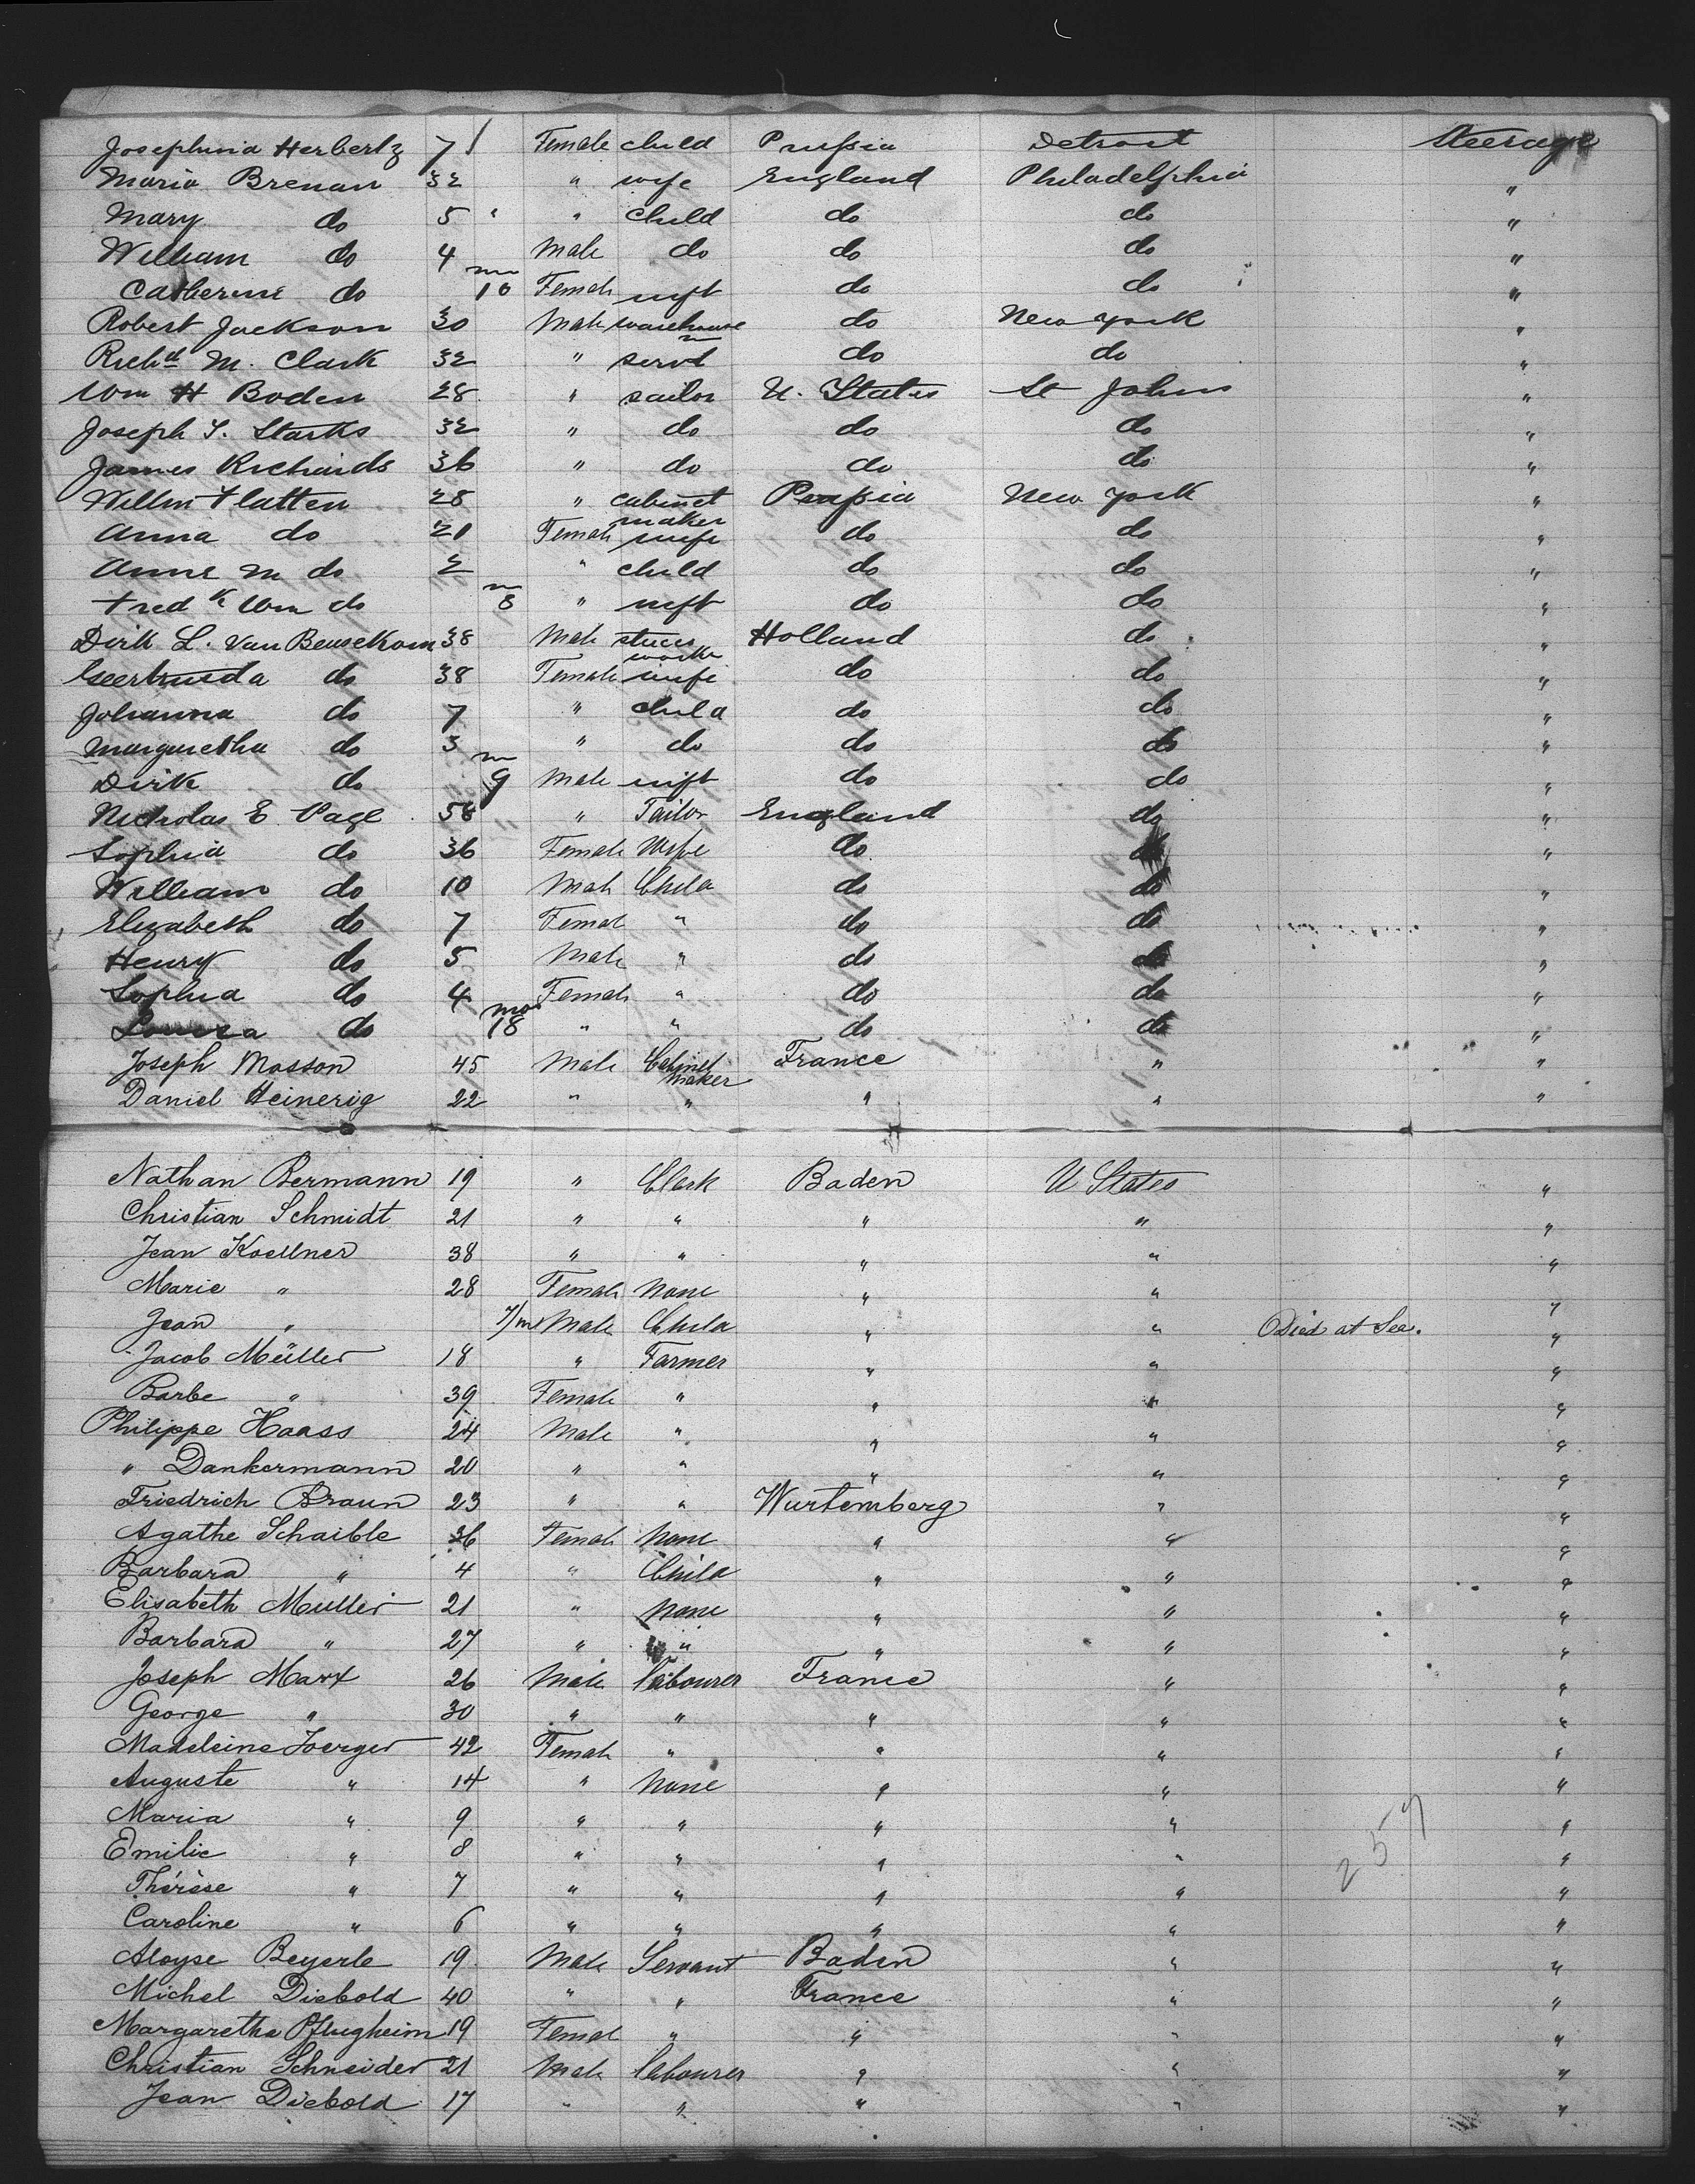 Josephina Herbertz 7 Female child Prussia Detroit Steerage
Maria Brenan 32 " wife England Philadelphia "
Mary do 5 " " child do do "
William do 4 Male do do do "
Catherine do m 10 Female inft do do "
Robert Jackson 30 Male warehouse m do New York "
Richd M. Clark 32 " servt do do "
Wm H Boden 28 " sailor U. States St Johns "
Joseph S. Starks 32 " do do do "
James Richards 36 " do do do "
Willm Flatten 28 " cabinet maker Prussia New York "
Anna do 21 Female wife do do "
Anne M do 2 " child do do "
Fredk Wm do m 8 " inft do do "
Dirk L. Van Beuselkom 38 Male worker Holland do "
Geertruida do 38 Female wife do do "
Johanna do 7 " child do do "
Margaretha do 3 " do do do "
Dirk do m 9 Male inft do do "
Nicholas E Page 58 " Tailor England do "
Sophia do 36 Female Wife do do "
William do 10 Male Child do do "
Elizabeth do 7 Female " do do "
Henry do 5 Male " do do "
Sophia do 4 Female " do do "
Louisa do mos 18 " " do do "
Joseph Mosson 45 Male Cabinet maker France " "
Daniel Heinerig 22 " " " " "
Nathan Bermann 19 " Clerk Baden U States "
Christian Schmidt 21 " " " " "
Jean Koellner 38 " " " " "
Marie " 28 Female None " " "
Jean " 7/m Male Child " " Died at Sea. "
Jacob Müller 18 " Farmer " " "
Barbe " 39 Female " " " "
Philippe Haass 24 Male " " " "
" Dankermann 20 " " " " "
Friedrich Braun 23 " " Wurtemberg " "
Agathe Schaible 36 Female None " " "
Barbara " 4 " Child " " "
Elisabeth Muller 21 " None " " "
Barbara " 27 " " " " "
Joseph Marx 26 Male labourer France " "
George " 30 " " " " "
Madeleine Joerger 42 Female " " " "
Auguste " 14 " None " " "
Maria " 9 " " " " "
Emilie " 8 " " " " "
Thérèse " 7 " " " " "
Caroline " 6 " " " " "
Aloyse Beyerle 19 Male Servant Baden " "
Michel Diebold 40 " " France " "
Margaretha Pflugheim 19 Female " " " "
Christian Schneider 21 Male labourer " " "
Jean Diebold 17 " " " " "
257